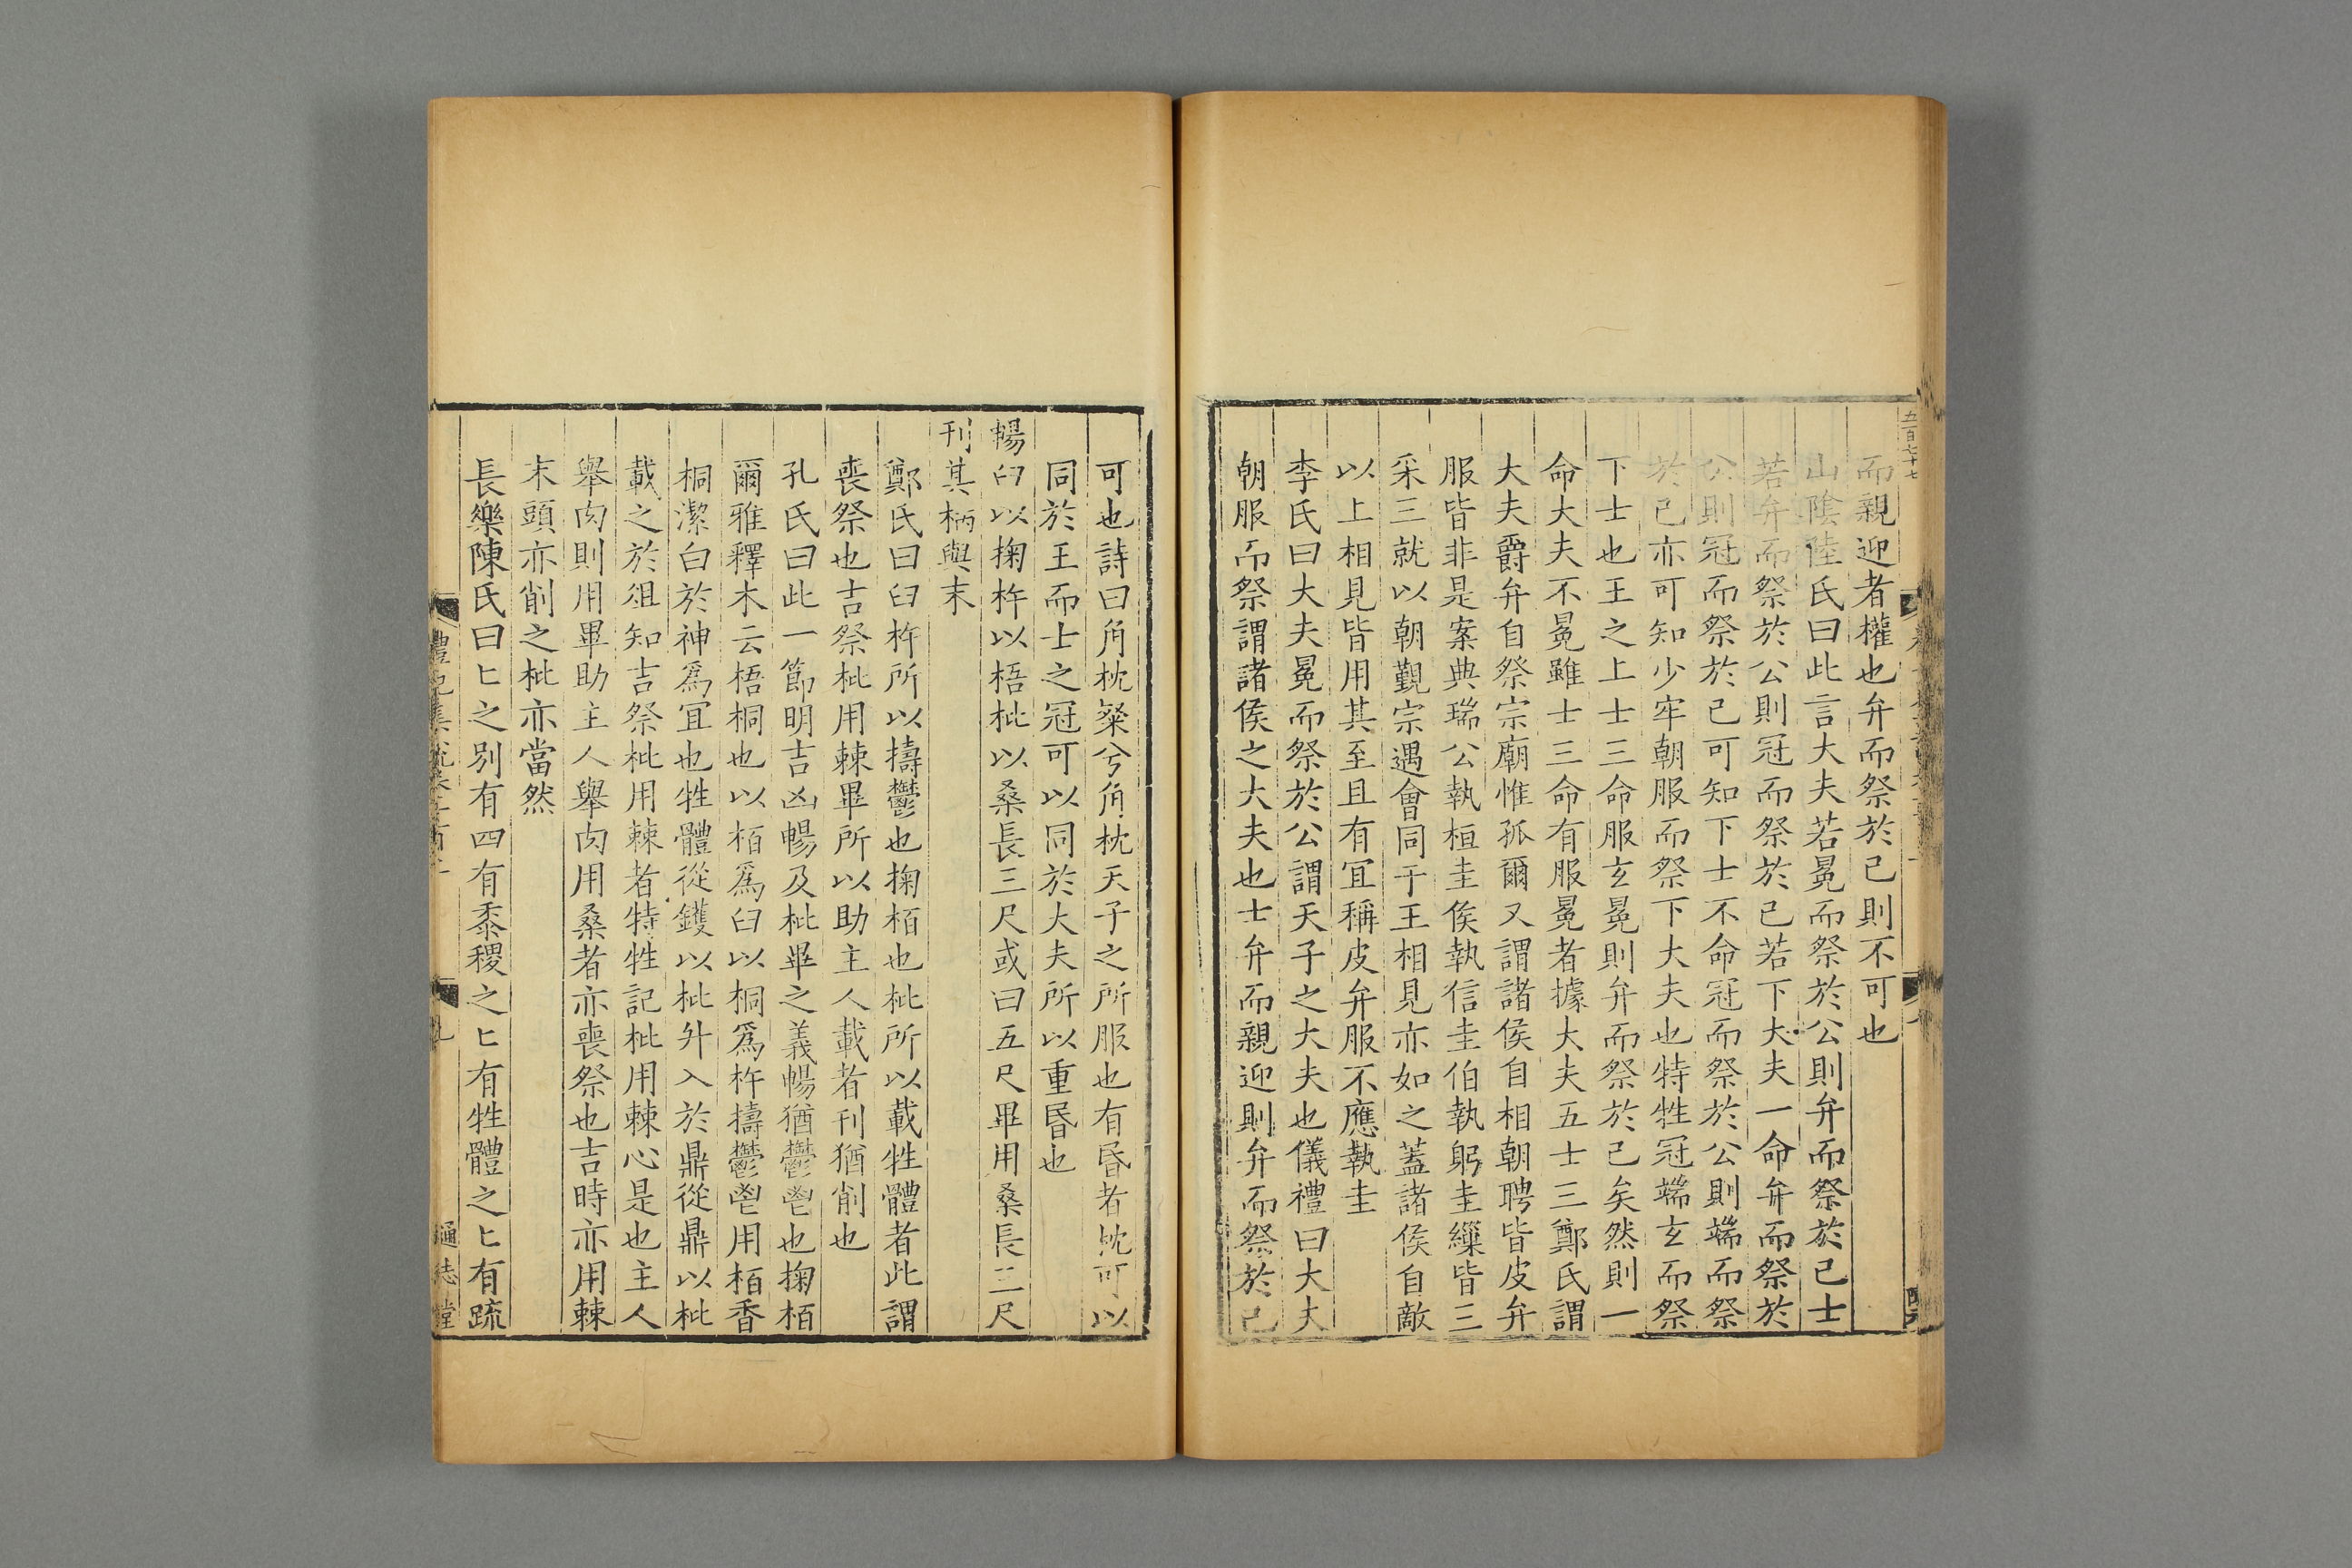 五百七十七
而親迎者權也弁而祭於已則不可也
山陰陸氏曰此言大夫若冕而祭於公則弁而祭於已士
若弁而祭於公則冠而祭於已若下大夫一命弁而祭於
公則冠而祭於已可知下士不命冠而祭於公則端而祭
於已亦可知少牢朝服而祭下大夫也特牲冠端玄而祭
下士也王之上士三命服玄冕則弁而祭於已矣然則一
命大夫不冕雖士三命有服冕者據大夫五士三鄭氏謂
大夫爵弁自祭宗廟惟孤爾又謂諸侯自相朝聘皆皮弁
服皆非是案典瑞公執桓圭侯執信圭伯執躬圭繅皆三
采三就以朝覲宗遇會同于王相見亦如之蓋諸侯自敵
以上相見皆用其至且有冝稱皮弁服不應執圭
李氏曰大夫冕而祭於公謂天子之大夫也儀禮曰大夫
朝服而祭謂諸侯之大夫也士弁而親迎則弁而祭於已
可也詩曰角枕粲兮角枕天子之所服也有昏者枕可以
同於王而士之冠可以同於大夫所以重昏也
暢臼以掬杵以梧枇以桑長三尺或曰五尺畢用桑長三尺
刊其柄與末
鄭氏曰臼杵所以擣鬱也掬栢也枇所以載牲體者此謂
喪祭也吉祭枇用棘畢所以助主人載者刊猶削也
孔氏曰此一節明吉凶暢及枇畢之義暢猶鬱鬯也掬栢
爾雅釋木云梧桐也以栢爲臼以桐爲杵擣鬱鬯用栢香
桐潔白於神爲冝也牲體從鑊以枇升入於鼎從鼎以枇
載之於俎知吉祭枇用棘者特牲記枇用棘心是也主人
舉肉則用畢助主人舉肉用桑者亦喪祭也吉時亦用棘
末頭亦削之枇亦當然
長樂陳氏曰匕之別有四有黍稷之匕有牲體之匕有疏
禮記集說卷
通志堂